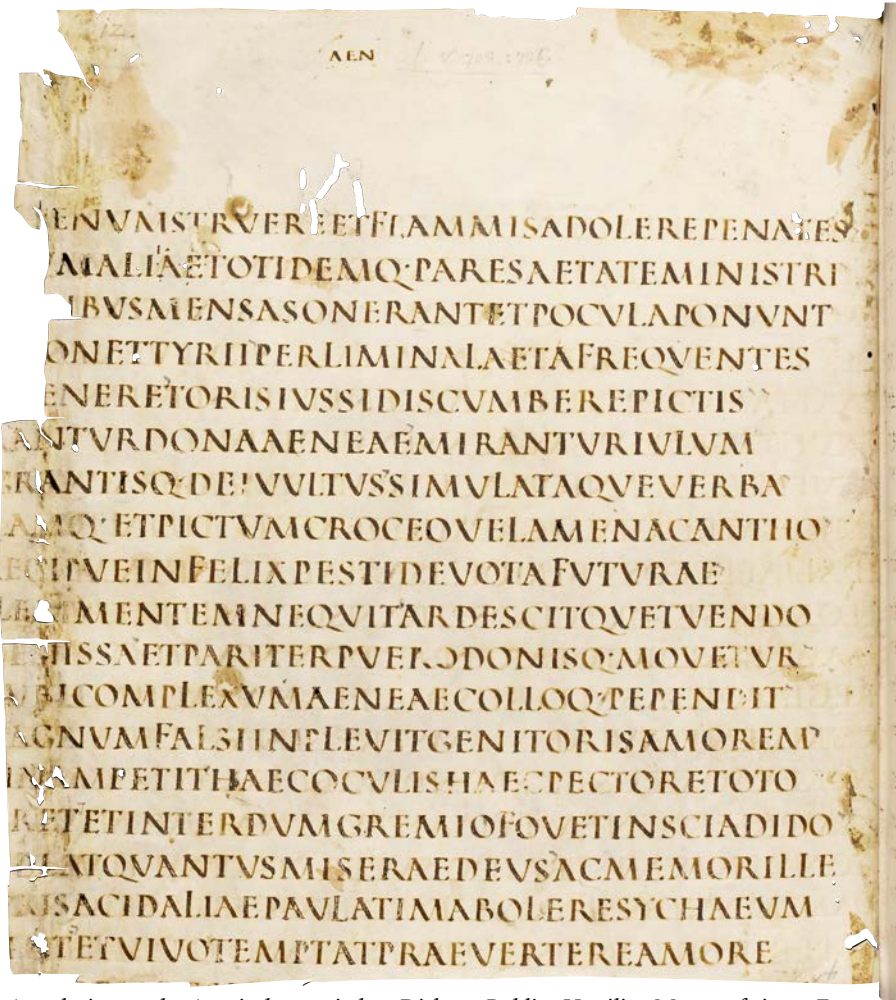 AEN
ENVMSTRVEREETFLAMMISADOLEREPENATES
MALIAETOTIDEMQ·PARESAETATEMINISTRI
IBVSMENSASONERANTETPOCVLAPONVNT
ONETTYRIIPERLIMINALAETAFREQVENTES
ENERETORISIVSSIDISCVMBEREPICTIS
ANTVRDONAAENEAEMIRANTVRIVLVM
RANTISQ·DEIVVLTVSSIMVLATAQVEVERBA
AMQ·ETPICTVMCROCEOVELAMENACANTHO
ECIPVEINFELIXPESTIDEVOTAFVTVRAE
LERIMENTEMNEQVITARDESCITQVETVENDO
NISSAETPARITERPVERODONISQ·MOVETVR
BICOMPLEXVMAENEAECOLLOQ·PEPENDIT
AGNVMFALSIINPLEVITGENITORISAMOREM
INAMPETITHAECOCVLISHAECPECTORETOTO
RETETINTERDVMGREMIOFOVETINSCIADIDO
DEATQVANTVSMISERAEDEVSACMEMORILLE
ISACIDALIAEPAVLATIMABOLERESYCHAEVM
ETVIVOTEMPTATPRAEVERTEREAMORE